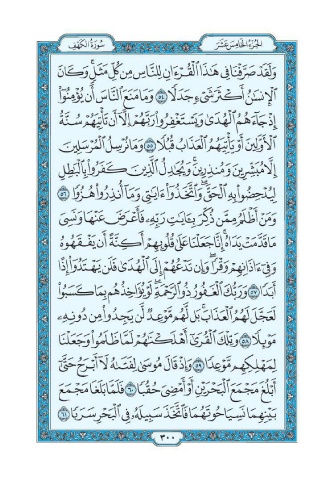 الجزء الخامس عشر
سورة الكهف
وَلَقَدْ صَرَّفْنَا فِي هَٰذَا الْقُرْءَانِ لِلنَّاسِ مِن كُلِّ مَثَلٍ وَكَانَ
الْإِنسَٰنُ أَكْثَرَ شَيْءٍ جَدَلًا ٥٤ وَمَا مَنَعَ النَّاسَ أَن يُؤْمِنُوا
إِذْ جَاءَهُمُ الْهُدَىٰ وَيَسْتَغْفِرُوا رَبَّهُمْ إِلَّا أَن تَأْتِيَهُمْ سُنَّةُ
الْأَوَّلِينَ أَوْ يَأْتِيَهُمُ الْعَذَابُ قُبُلًا ٥٥ وَمَا نُرْسِلُ الْمُرْسَلِينَ
إِلَّا مُبَشِّرِينَ وَمُنذِرِينَ وَيُجَٰدِلُ الَّذِينَ كَفَرُوا بِالْبَٰطِلِ
لِيُدْحِضُوا بِهِ الْحَقَّ وَاتَّخَذُوا ءَايَٰتِي وَمَا أُنذِرُوا هُزُوًا ٥٦
وَمَنْ أَظْلَمُ مِمَّن ذُكِّرَ بِـَٔايَٰتِ رَبِّهِ فَأَعْرَضَ عَنْهَا وَنَسِيَ
مَا قَدَّمَتْ يَدَاهُ إِنَّا جَعَلْنَا عَلَىٰ قُلُوبِهِمْ أَكِنَّةً أَن يَفْقَهُوهُ
وَفِي ءَاذَانِهِمْ وَقْرًا وَإِن تَدْعُهُمْ إِلَى الْهُدَىٰ فَلَن يَهْتَدُوا إِذًا
أَبَدًا ٥٧ وَرَبُّكَ الْغَفُورُ ذُو الرَّحْمَةِ لَوْ يُؤَاخِذُهُم بِمَا كَسَبُوا
لَعَجَّلَ لَهُمُ الْعَذَابَ بَل لَّهُم مَّوْعِدٌ لَّن يَجِدُوا مِن دُونِهِ
مَوْئِلًا ٥٨ وَتِلْكَ الْقُرَىٰ أَهْلَكْنَٰهُمْ لَمَّا ظَلَمُوا وَجَعَلْنَا
لِمَهْلِكِهِم مَّوْعِدًا ٥٩ وَإِذْ قَالَ مُوسَىٰ لِفَتَىٰهُ لَا أَبْرَحُ حَتَّىٰ
أَبْلُغَ مَجْمَعَ الْبَحْرَيْنِ أَوْ أَمْضِيَ حُقُبًا ٦٠ فَلَمَّا بَلَغَا مَجْمَعَ
بَيْنِهِمَا نَسِيَا حُوتَهُمَا فَاتَّخَذَ سَبِيلَهُ فِي الْبَحْرِ سَرَبًا ٦١
٣٠٠